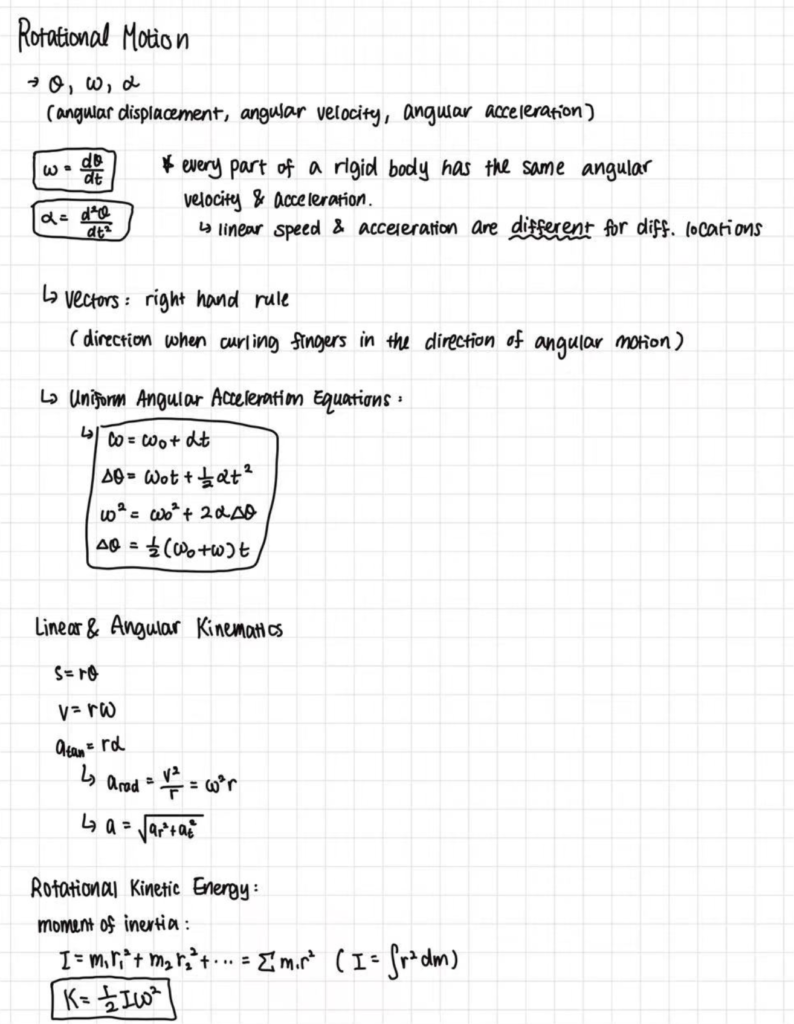 Rotational Motion
→ θ, ω, α
(angular displacement, angular velocity, angular acceleration)
ω = dθ/dt
* every part of a rigid body has the same angular
velocity & acceleration.
α = d²θ/dt²
↳ linear speed & acceleration are different for diff. locations
↳ vectors: right hand rule
(direction when curling fingers in the direction of angular motion)
↳ Uniform Angular Acceleration Equations:
↳ ω = ω₀ + αt
Δθ = ω₀t + ½αt²
ω² = ω₀² + 2αΔθ
Δθ = ½(ω₀+ω)t
Linear & Angular Kinematics
s = rθ
v = rω
a_tan = rα
↳ a_rad = v²/r = ω²r
↳ a = √(a_r² + a_t²)
Rotational Kinetic Energy:
moment of inertia:
I = m₁r₁² + m₂r₂² + ··· = Σmᵢr² (I = ∫r²dm)
K = ½Iω²